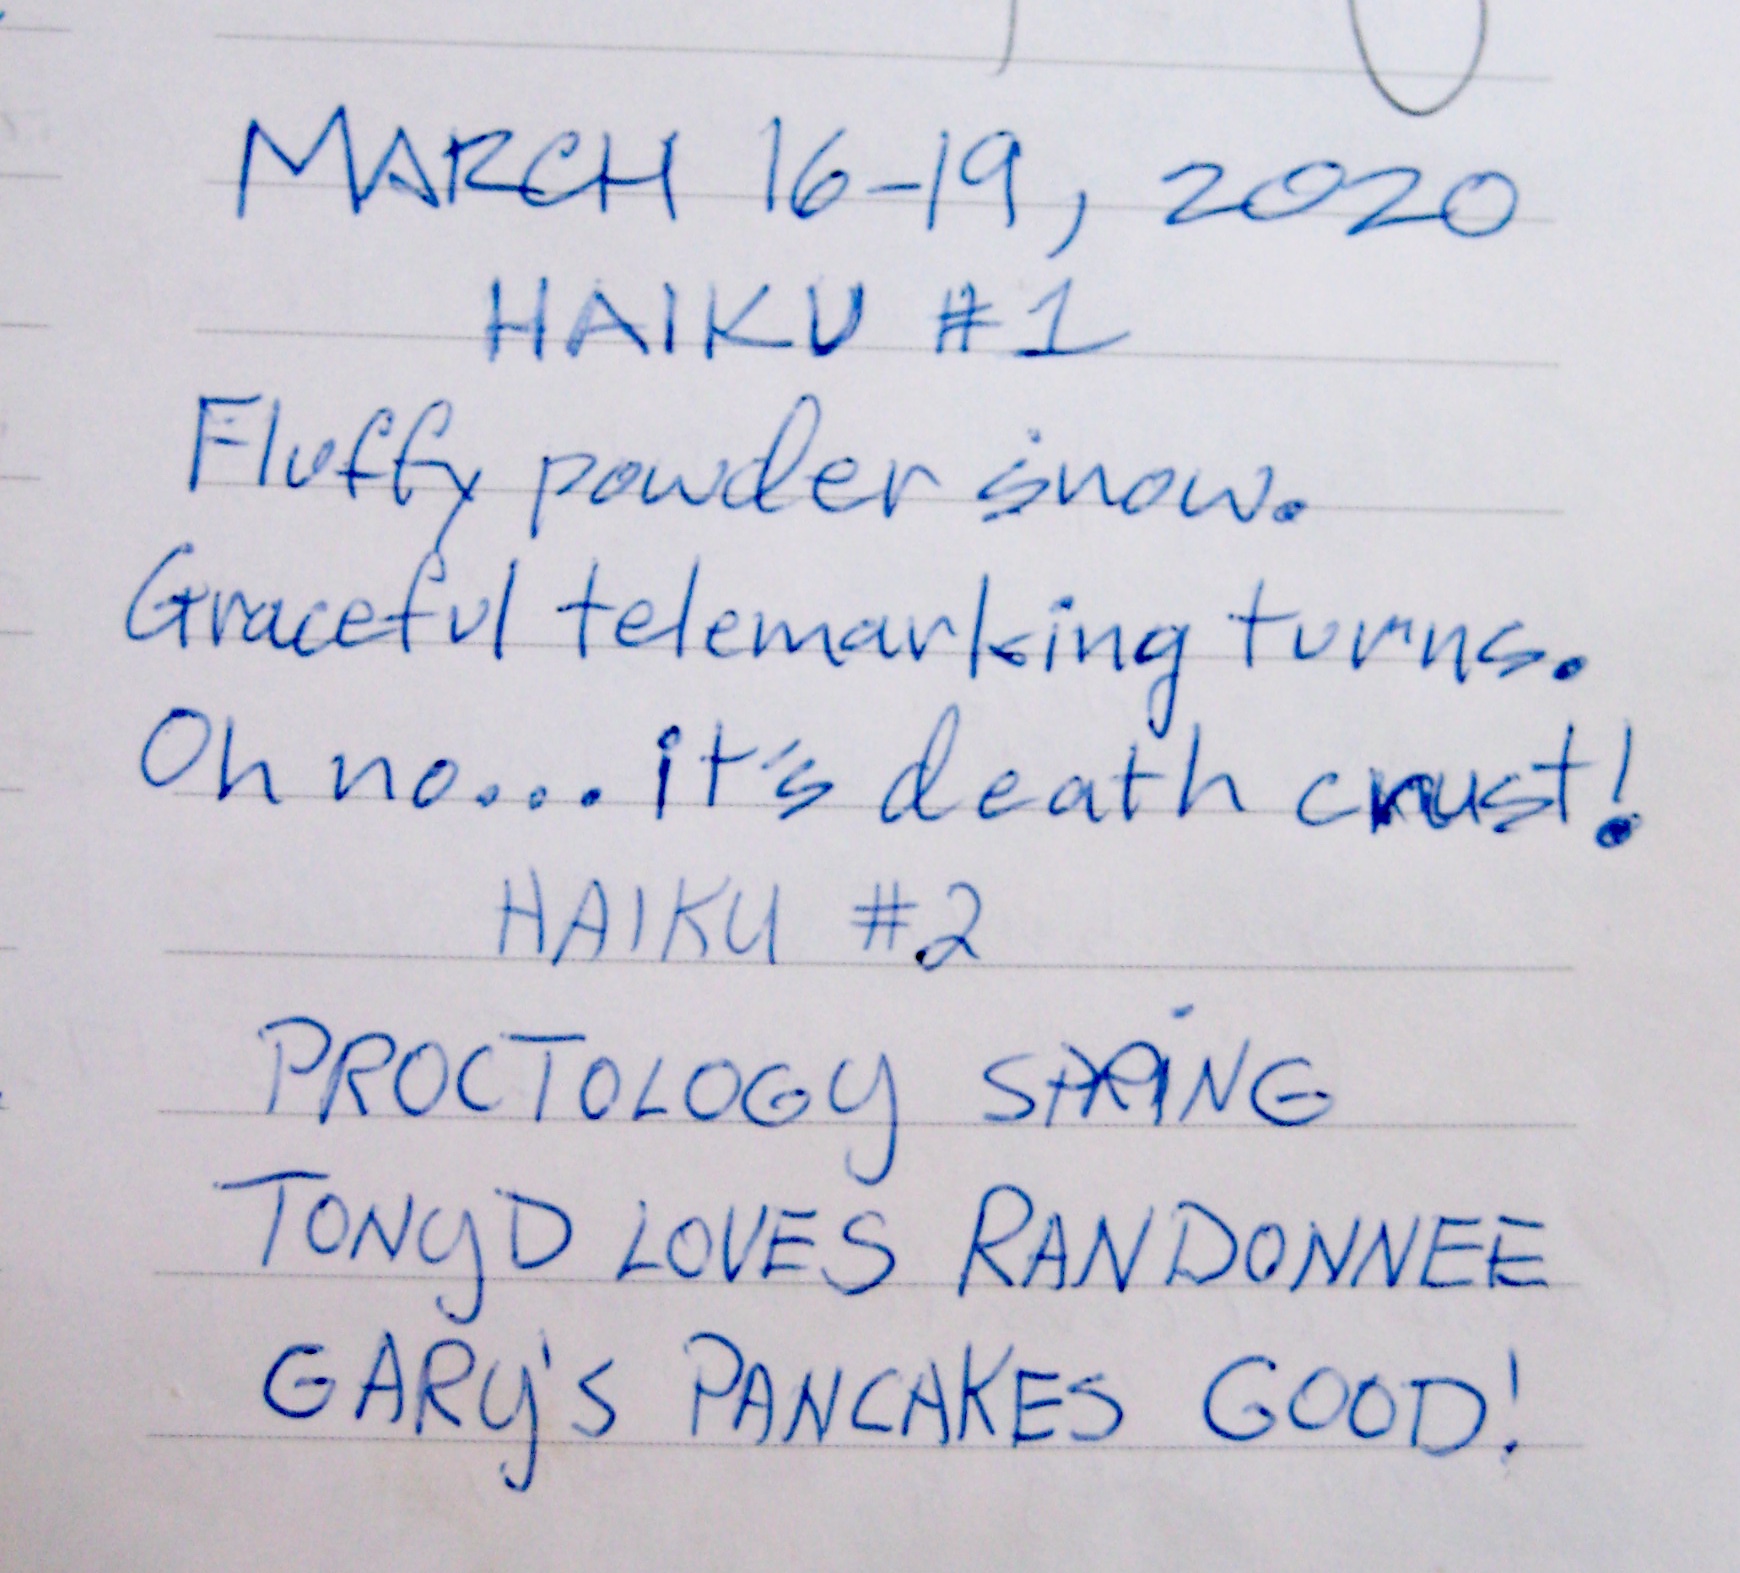 MARCH 16-19, 2020
HAIKU #1
Fluffy powder snow.
Graceful telemarking turns.
Oh no... it's death crust!
HAIKU #2
PROCTOLOGY SPRING
TONYD LOVES RANDONNEE
GARY'S PANCAKES GOOD!